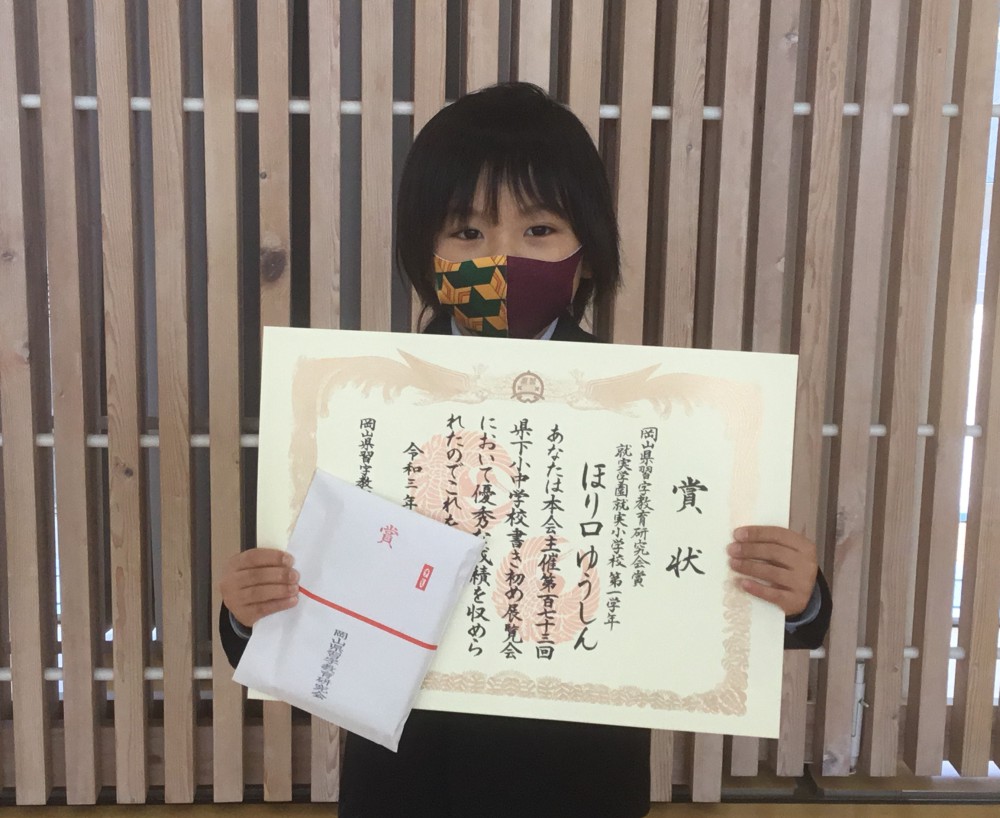 賞状
岡山県習字教育研究会賞
就実学園就実小学校 第一学年
ほり口ゆうしん
あなたは本会主催第百七十三回
県下小中学校書き初め展覧会
において優秀な成績を収めら
れたのでこれを
令和三年
岡山県習字教
賞
岡山県習字教育研究会